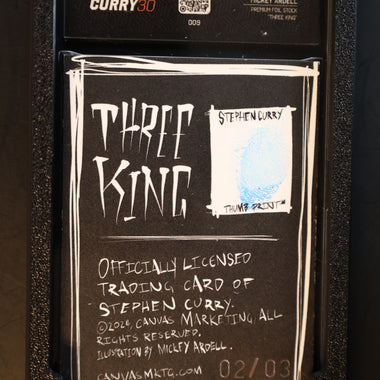 CURRY30
009
MICKEY ARDELL
PREMIUM FOIL STOCK
"THREE KING"
THREE
KING
STEPHEN CURRY
THUMB PRINT
OFFICIALLY LICENSED
TRADING CARD OF
STEPHEN CURRY.
©2026, CANVAS MARKETING, ALL
RIGHTS RESERVED.
ILLUSTRATION BY MICKEY ARDELL.
CANVASMKTG.COM
02/03